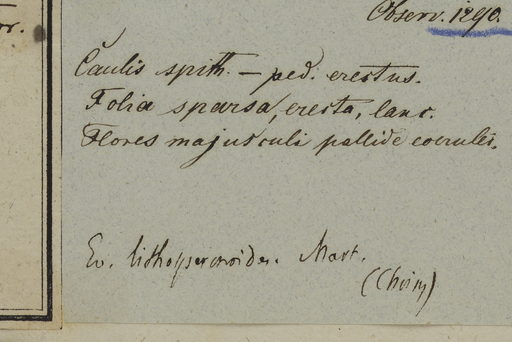 Observ. 1290.
or.
Caulis spith. – ped. erectus.
Folia sparsa, erecta, lanc.
Flores majusculi pallide coerulei.
Ev. lithospermoides. Mart.
(Choisy)